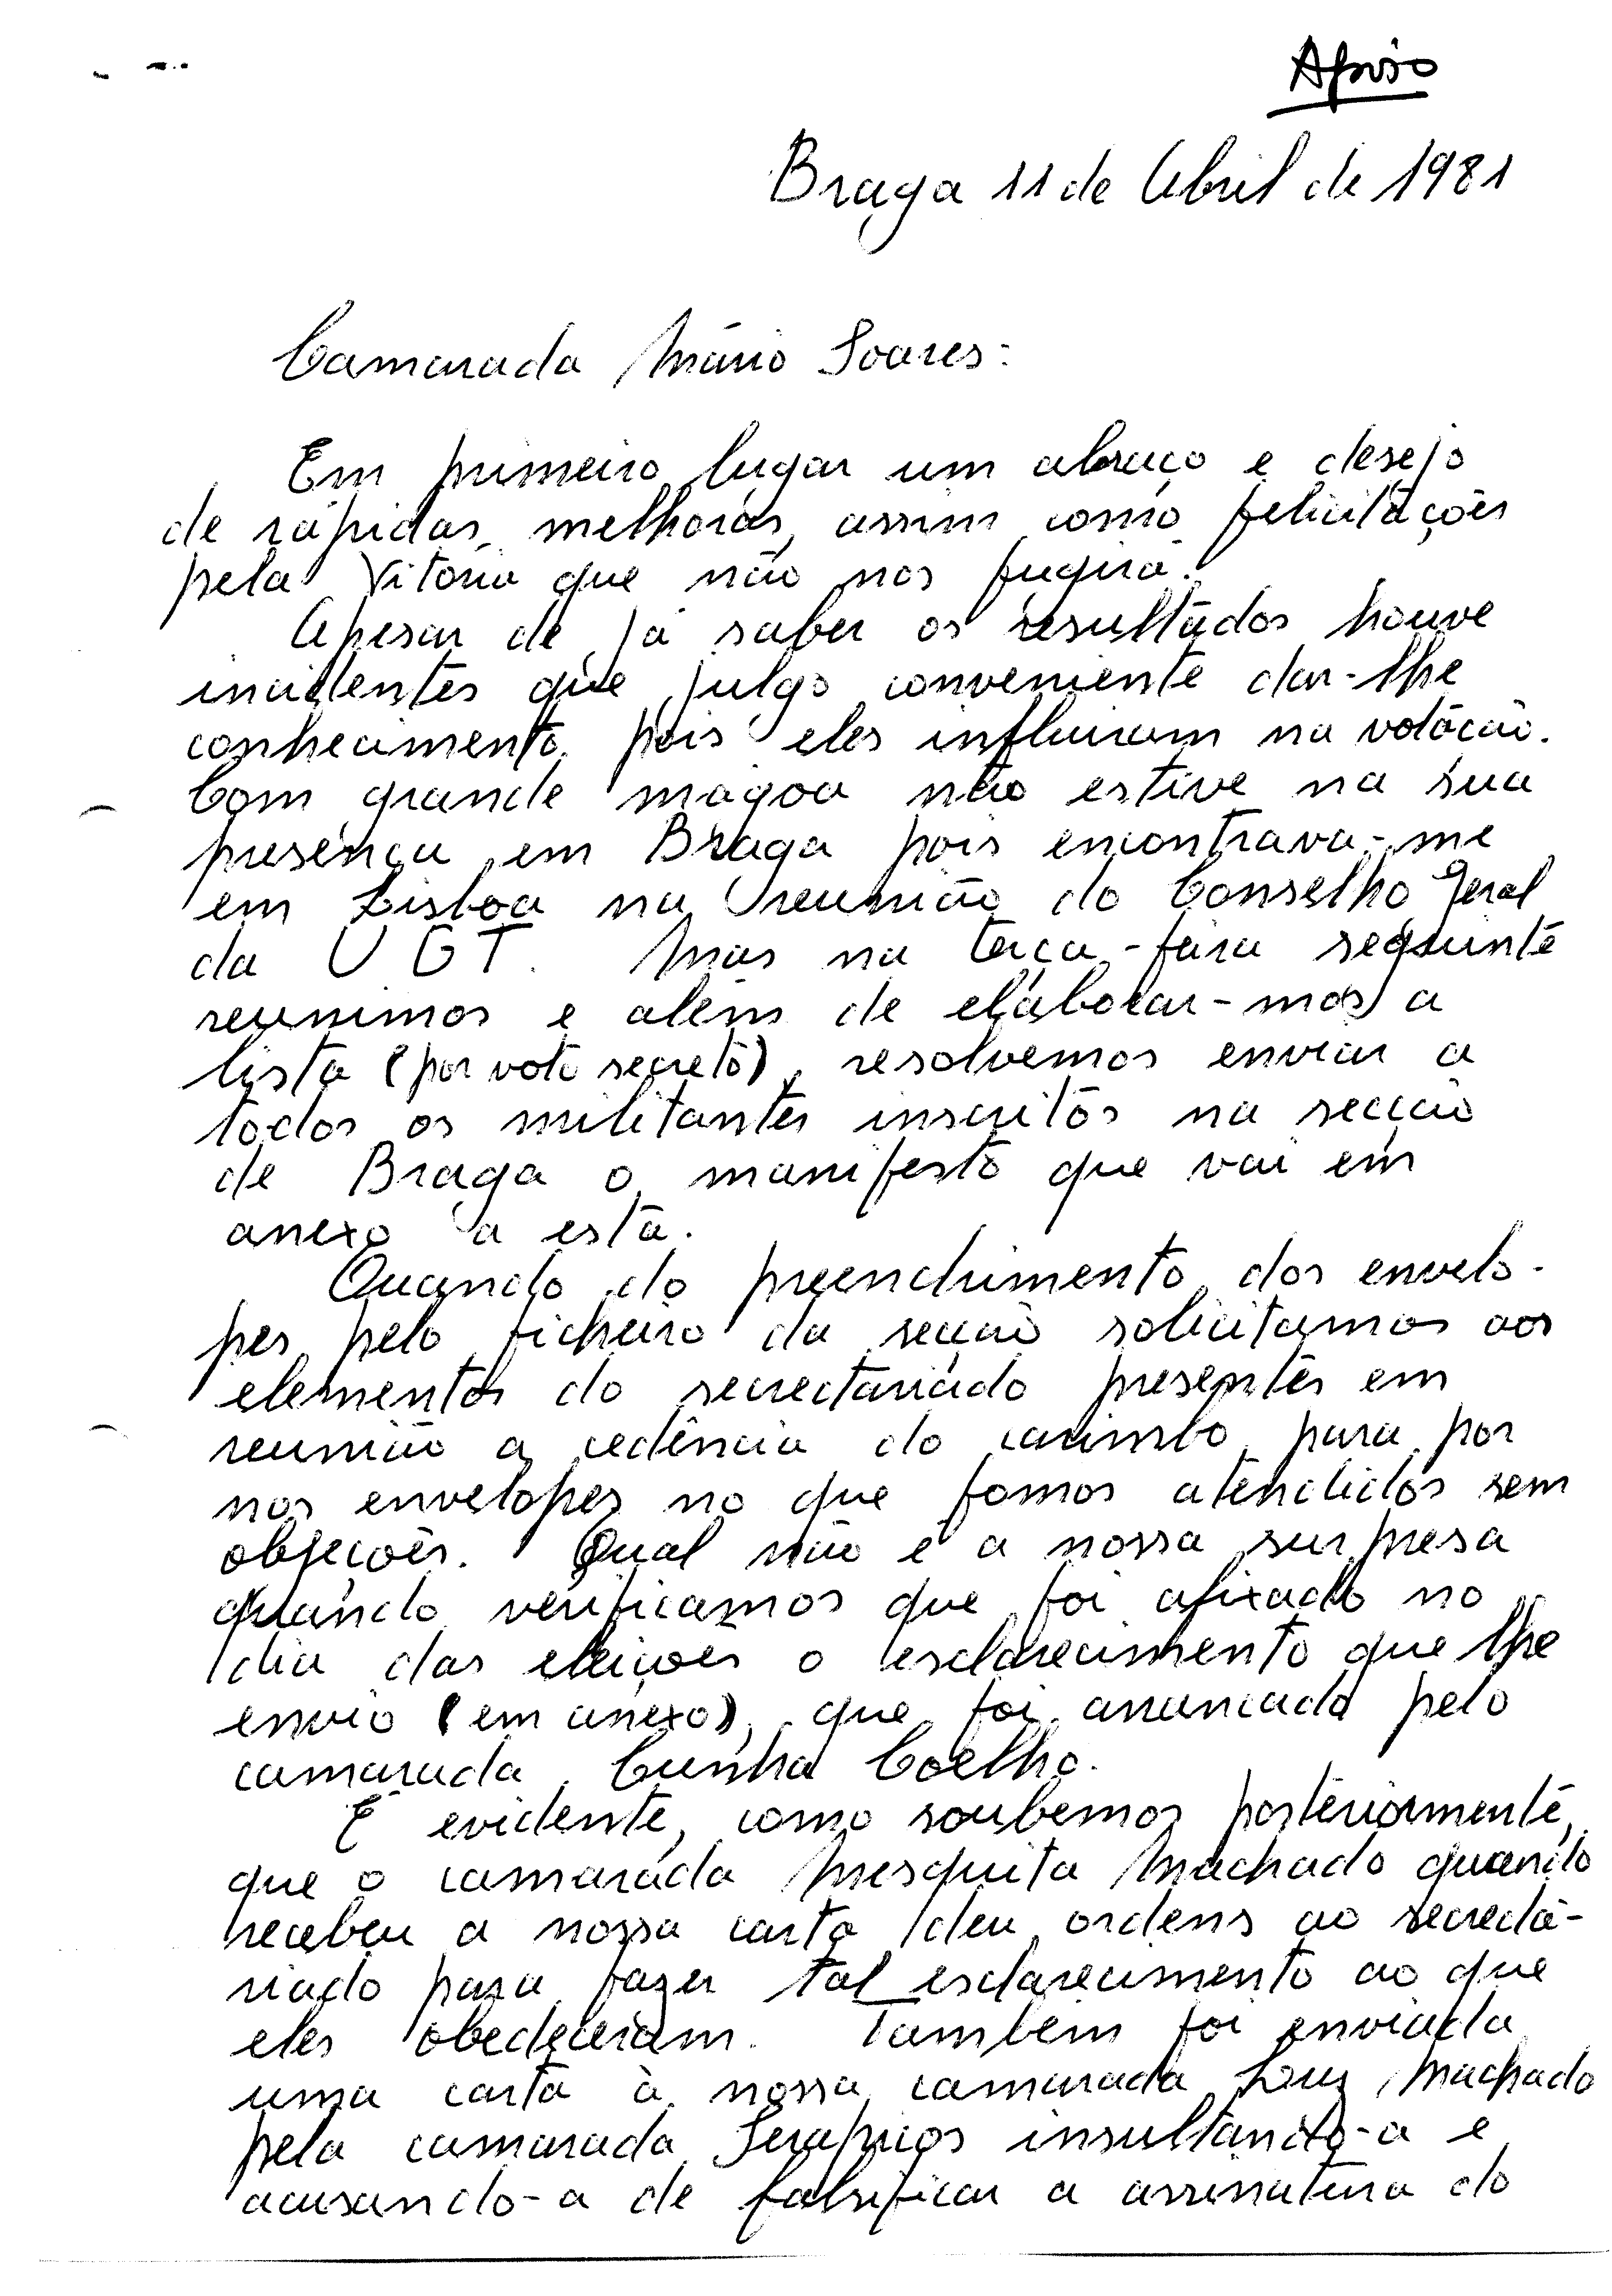 Apoio
Braga 11 de Abril de 1981
Camarada Mário Soares:
Em primeiro lugar um abraço e desejo
de rápidas melhoras, assim como felicitações
pela Vitória que não nos fugirá.
Apesar de já saber os resultados houve
incidentes que julgo conveniente dar-lhe
conhecimento, pois eles influiram na votação.
Com grande mágoa não estive na sua
presença em Braga pois encontrava-me
em Lisboa na reunião do Conselho Geral
da UGT. Mas na terça-feira seguinte
reunimos e além de elaborar-mos a
lista (por voto secreto), resolvemos enviar a
todos os militantes inscritos na secção
de Braga o manifesto que vai em
anexo a esta.
Quando do preenchimento dos envelo-
pes pelo ficheiro da secção solicitamos aos
elementos do secrectariado presentes em
reunião a cedência do carimbo para por
nos envelopes no que fomos atendidos sem
objecões. Qual não é a nossa surpresa
quando verificamos que foi afixado no
dia das eleições o esclarecimento que lhe
envio (em anexo), que foi arrancado pelo
camarada Cunha Coelho.
É evidente, como soubemos posteriormente,
que o camarada Mesquita Machado quando
recebeu a nossa carta deu ordens ao secreta-
riado para fazer tal esclarecimento ao que
eles obedeceram. Também foi enviada
uma carta à nossa camarada Luz Machado
pela camarada insultando-a e
acusando-a de falsificar a assinatura do